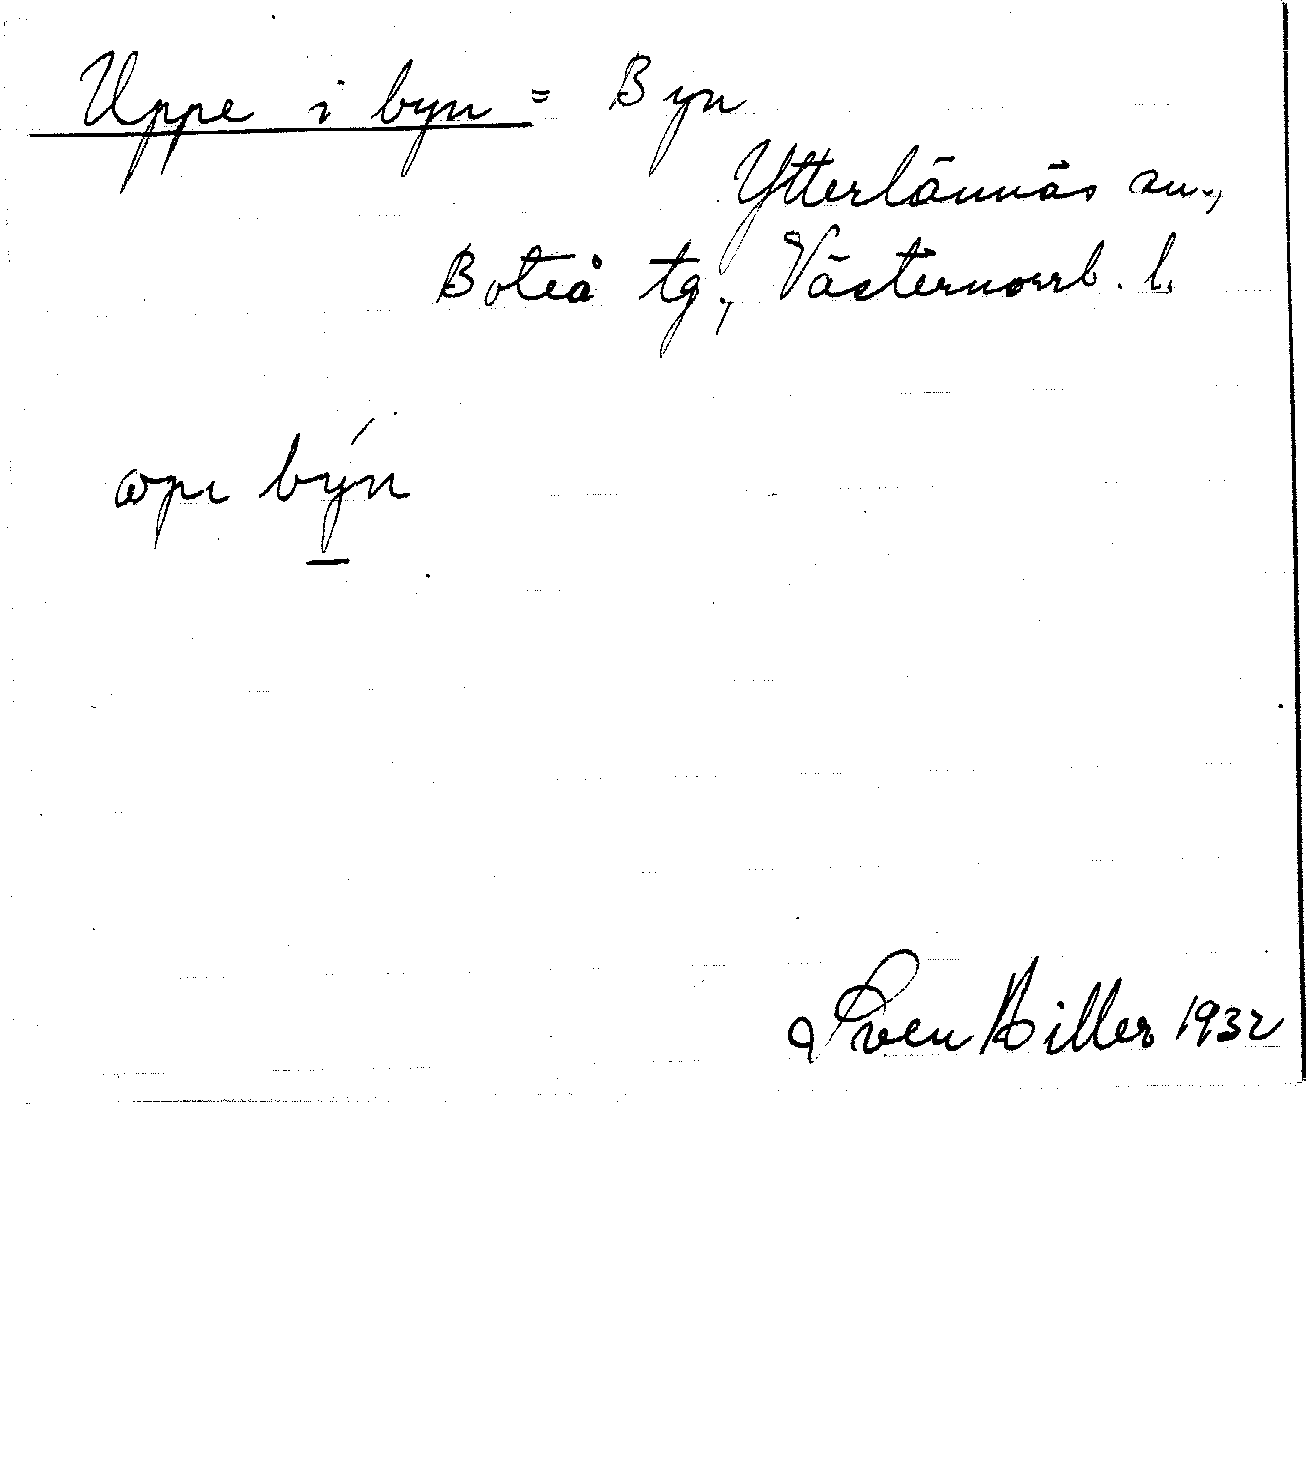 Uppe i byn = Byn
Ytterlännäs sn.,
Boteå tg., Västernorrl. l.
ɷpɩ býn
Sven Hiller 1932